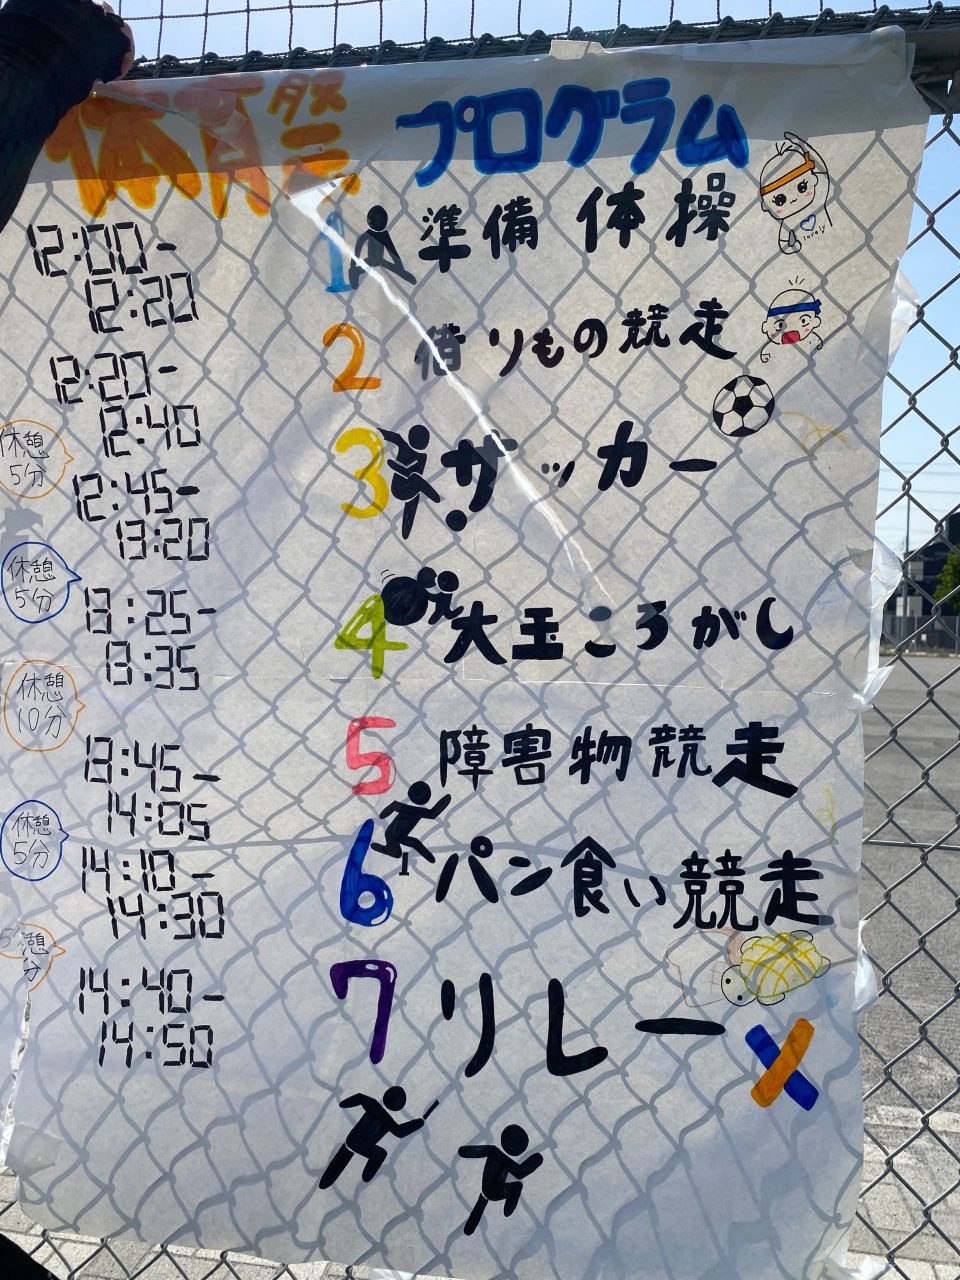 体育祭 プログラム
12:00-
12:20
1 準備体操
lovely
12:20-
12:40
2 借りもの競走
休憩
5分
12:45-
13:20
3 サッカー
休憩
5分
13:25-
13:35
4 大玉ころがし
休憩
10分
13:45-
14:05
5 障害物競走
休憩
5分
14:10-
14:30
6 パン食い競走
憩
分
14:40-
14:50
7 リレー